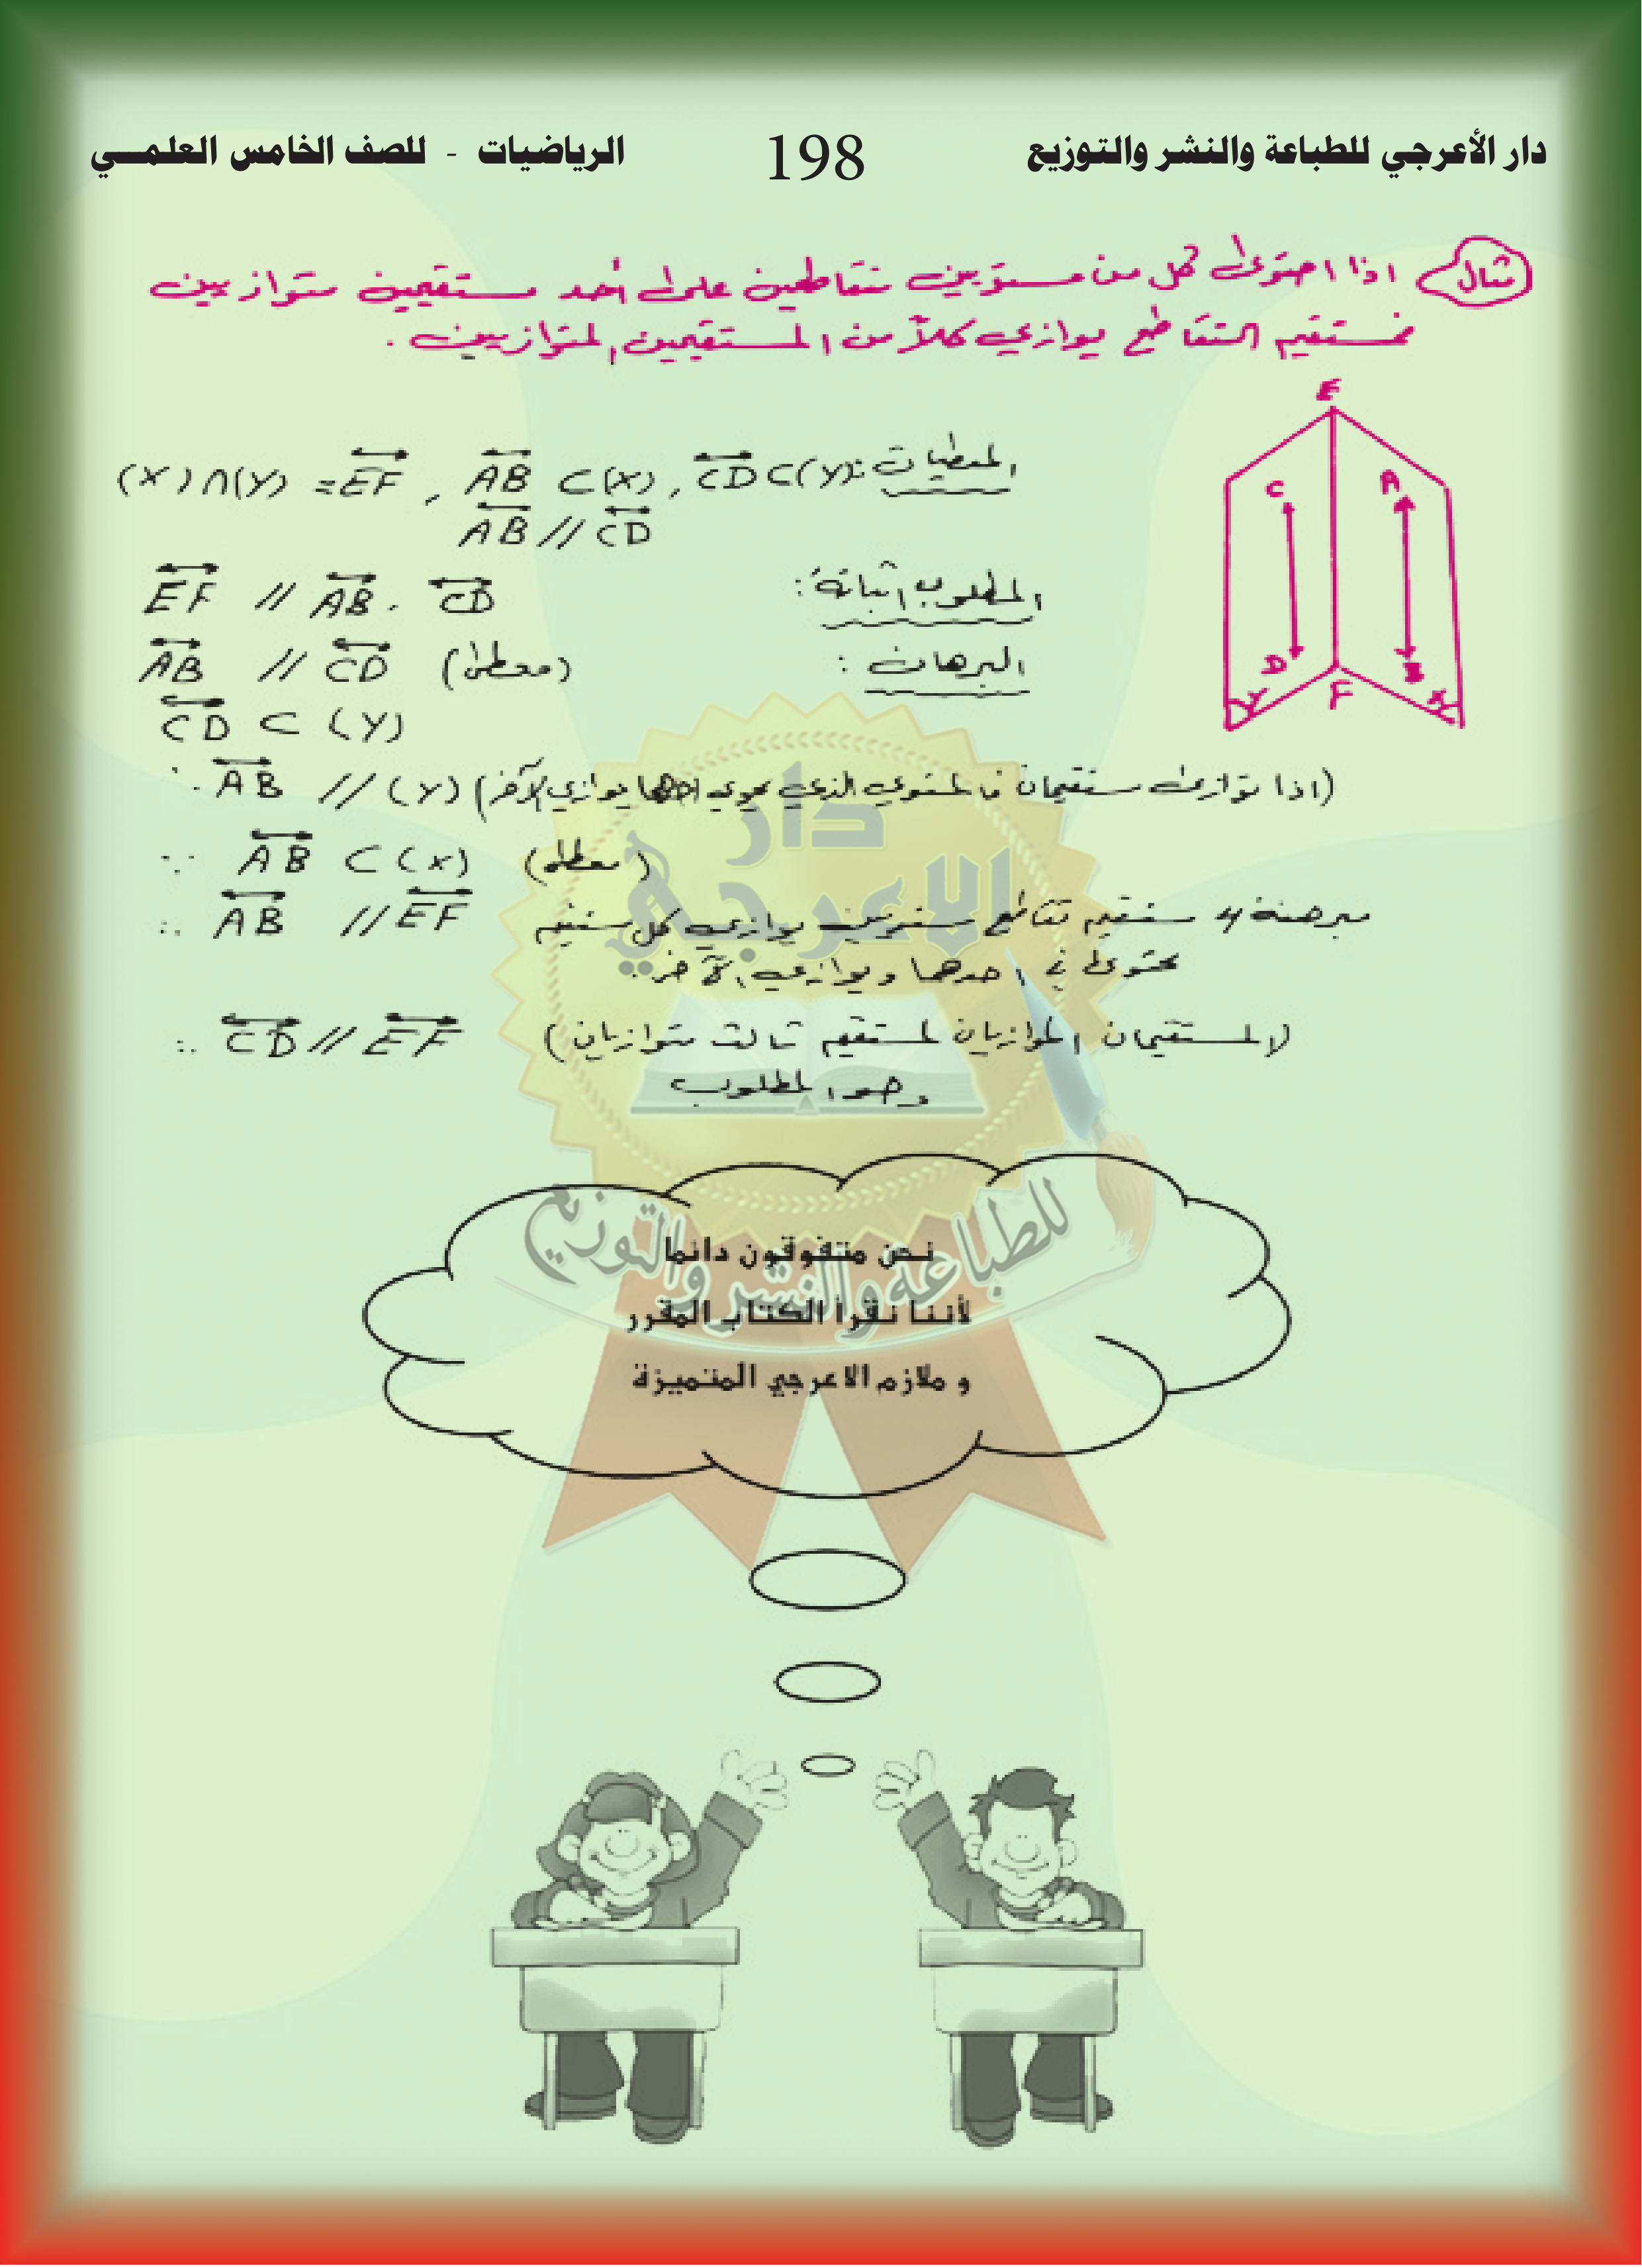 دار الأعرجي للطباعة والنشر والتوزيع 198 الرياضيات - للصف الخامس العلمي
مثال اذا احتوى كل من مستويين متقاطعين على أحد مستقيمين متوازيين
فمستقيم التقاطع يوازي كلاً من المستقيمين المتوازيين .
المعطيات: (X)∩(Y) = EF , AB ⊂ (X) , CD ⊂ (Y)
AB // CD
المطلوب اثباته: EF // AB . CD
البرهان : AB // CD (معطى)
CD ⊂ (Y)
∴ AB // (Y) (اذا توازى مستقيمان فالمستوي الذي يحوي احدهما يوازي الآخر)
∵ AB ⊂ (X) (معطى)
∴ AB // EF مستقيم تقاطع مستويين يوازي كل مستقيم
محتوى في احدهما ويوازي الآخر.
∴ CD // EF (المستقيمان الموازيان لمستقيم ثالث متوازيان)
وهو المطلوب
E
C
A
D
B
F
Y
X
دار
الاعرجي
للطباعة والنشر والتوزيع
نحن متفوقون دائما
لأننا نقرأ الكتاب المقرر
و ملازم الاعرجي المتميزة